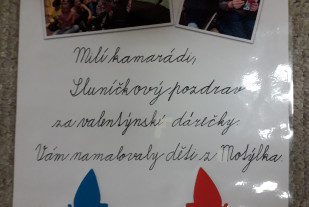 Milí kamarádi,
Sluníčkový pozdrav
za valentýnské dárečky
Vám namalovaly děti z Motýlka.